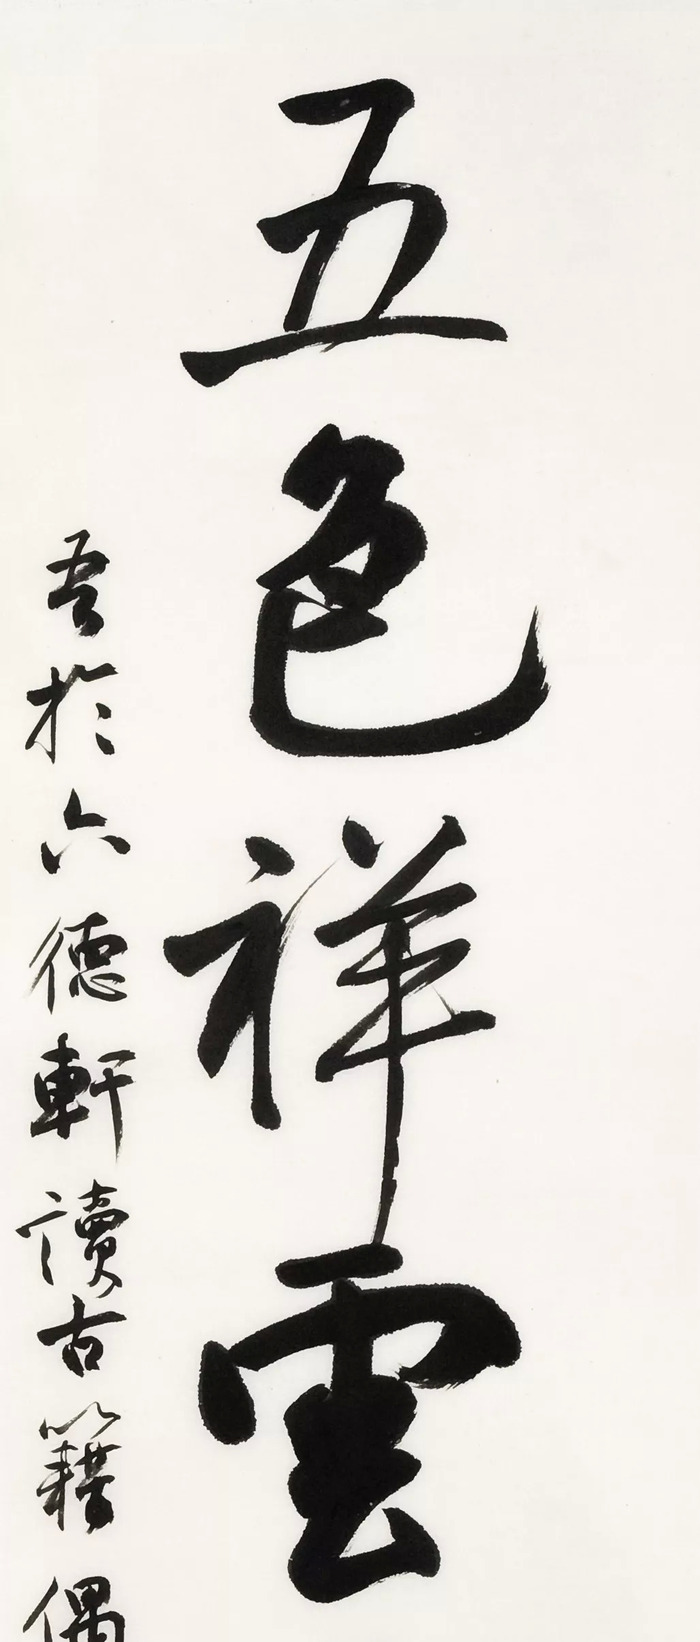 五色祥雲
吾於六德軒讀古籍偶